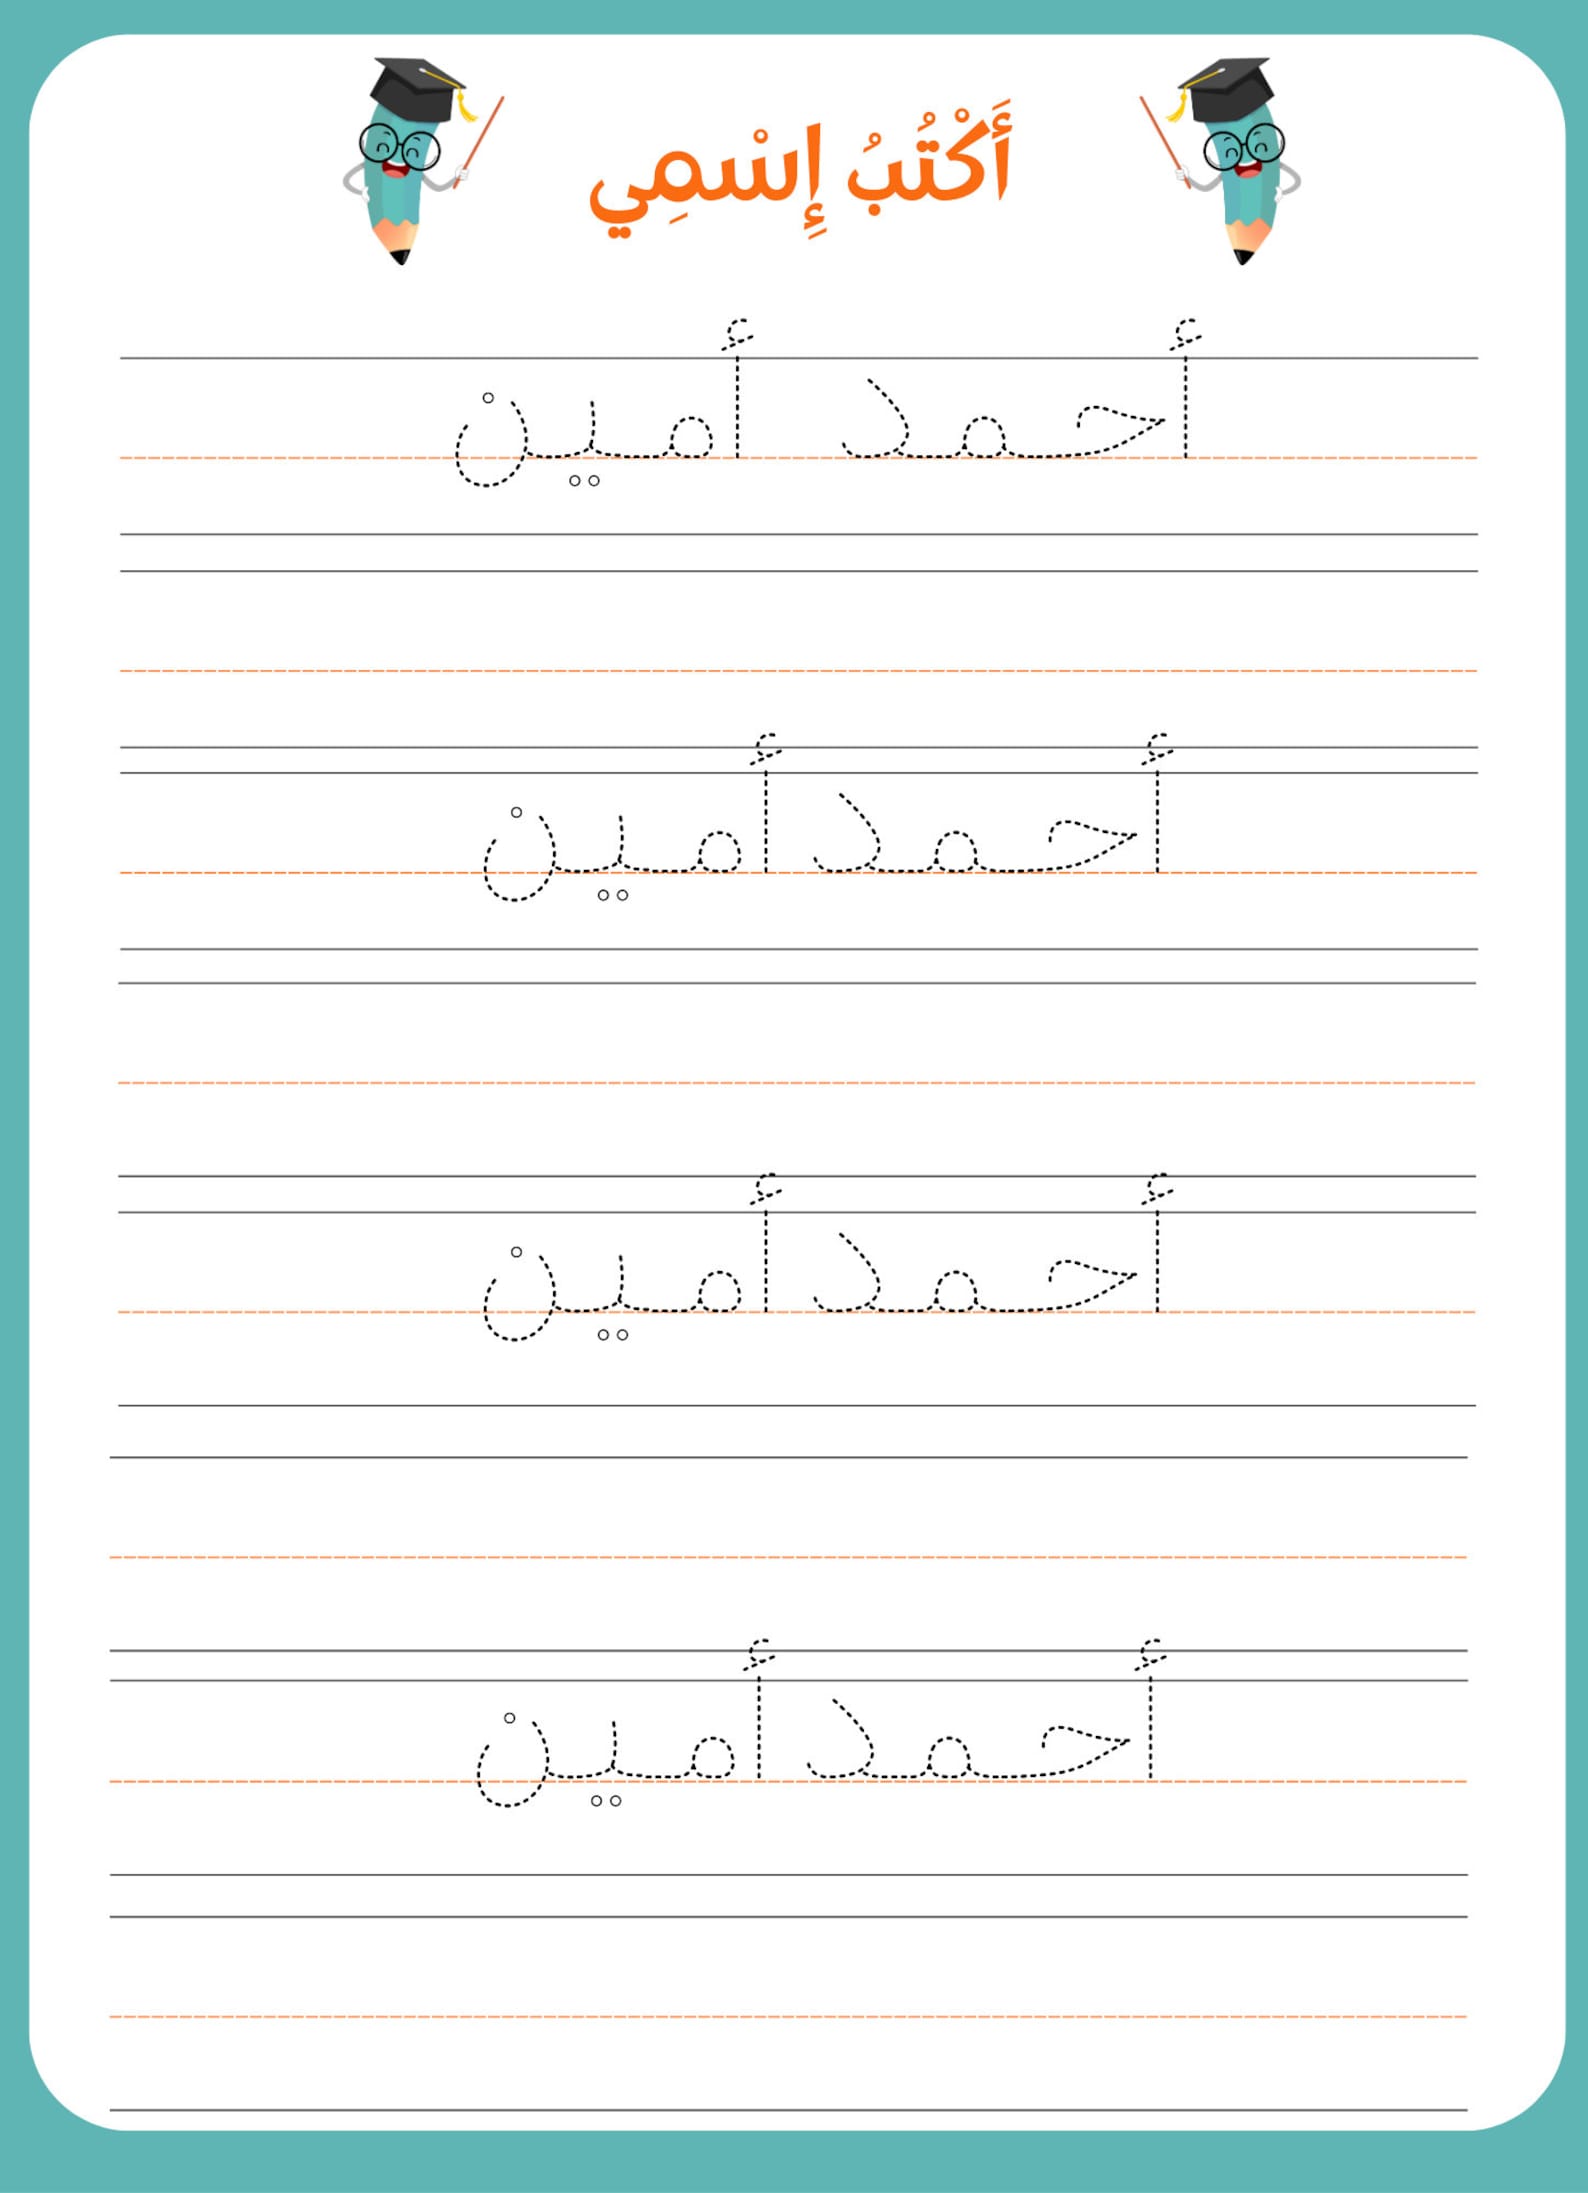 أَكْتُبُ إِسْمِي
أحمد أمين
أحمد أمين
أحمد أمين
أحمد أمين